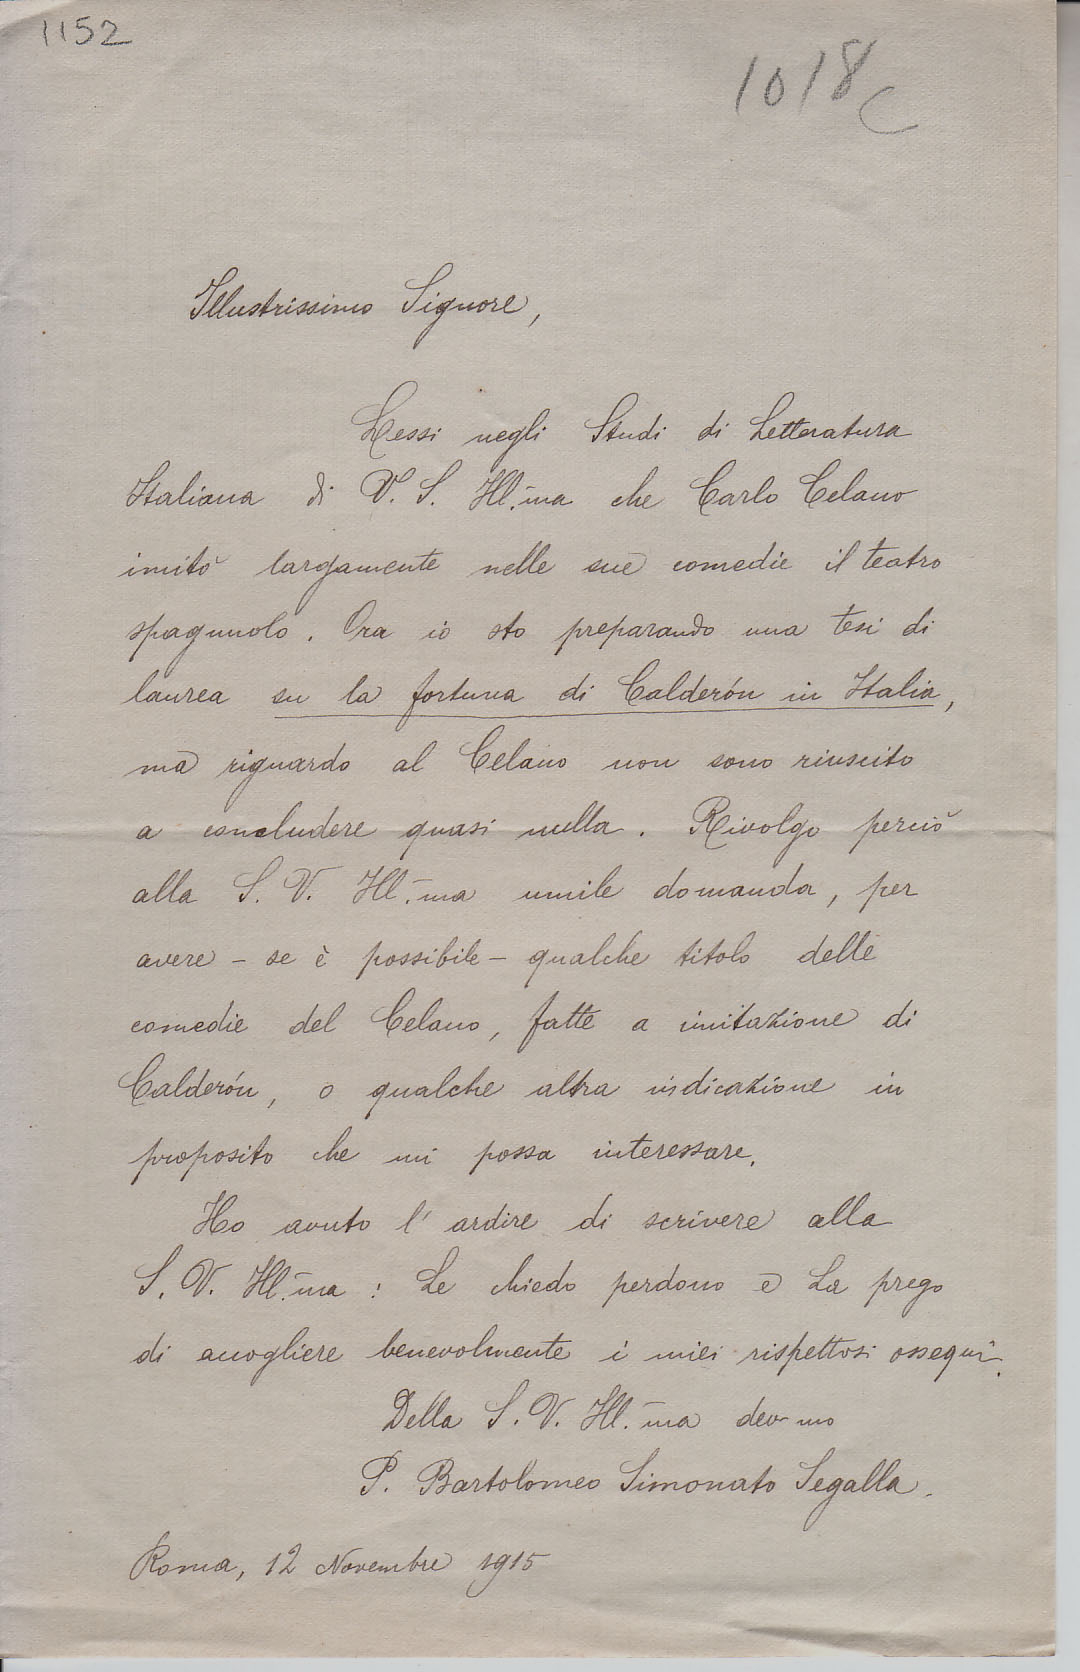 1152
1018 C
Illustrissimo Signore,
Lessi negli Studi di Letteratura
Italiana di V. S. Ill.ma che Carlo Celano
imitò largamente nelle sue comedie il teatro
spagnuolo. Ora io sto preparando una tesi di
laurea su la fortuna di Calderón in Italia,
ma riguardo al Celano non sono riuscito
a concludere quasi nulla. Rivolgo perciò
alla S. V. Ill.ma umile domanda, per
avere – se è possibile – qualche titolo delle
comedie del Celano, fatte a imitazione di
Calderón, o qualche altra indicazione in
proposito che mi possa interessare.
Ho avuto l'ardire di scrivere alla
S. V. Ill.ma : Le chiedo perdono e La prego
di accogliere benevolmente i miei rispettosi ossequi.
Della S. V. Ill.ma dev mo
P. Bartolomeo Simonato Segalla.
Roma, 12 Novembre 1915